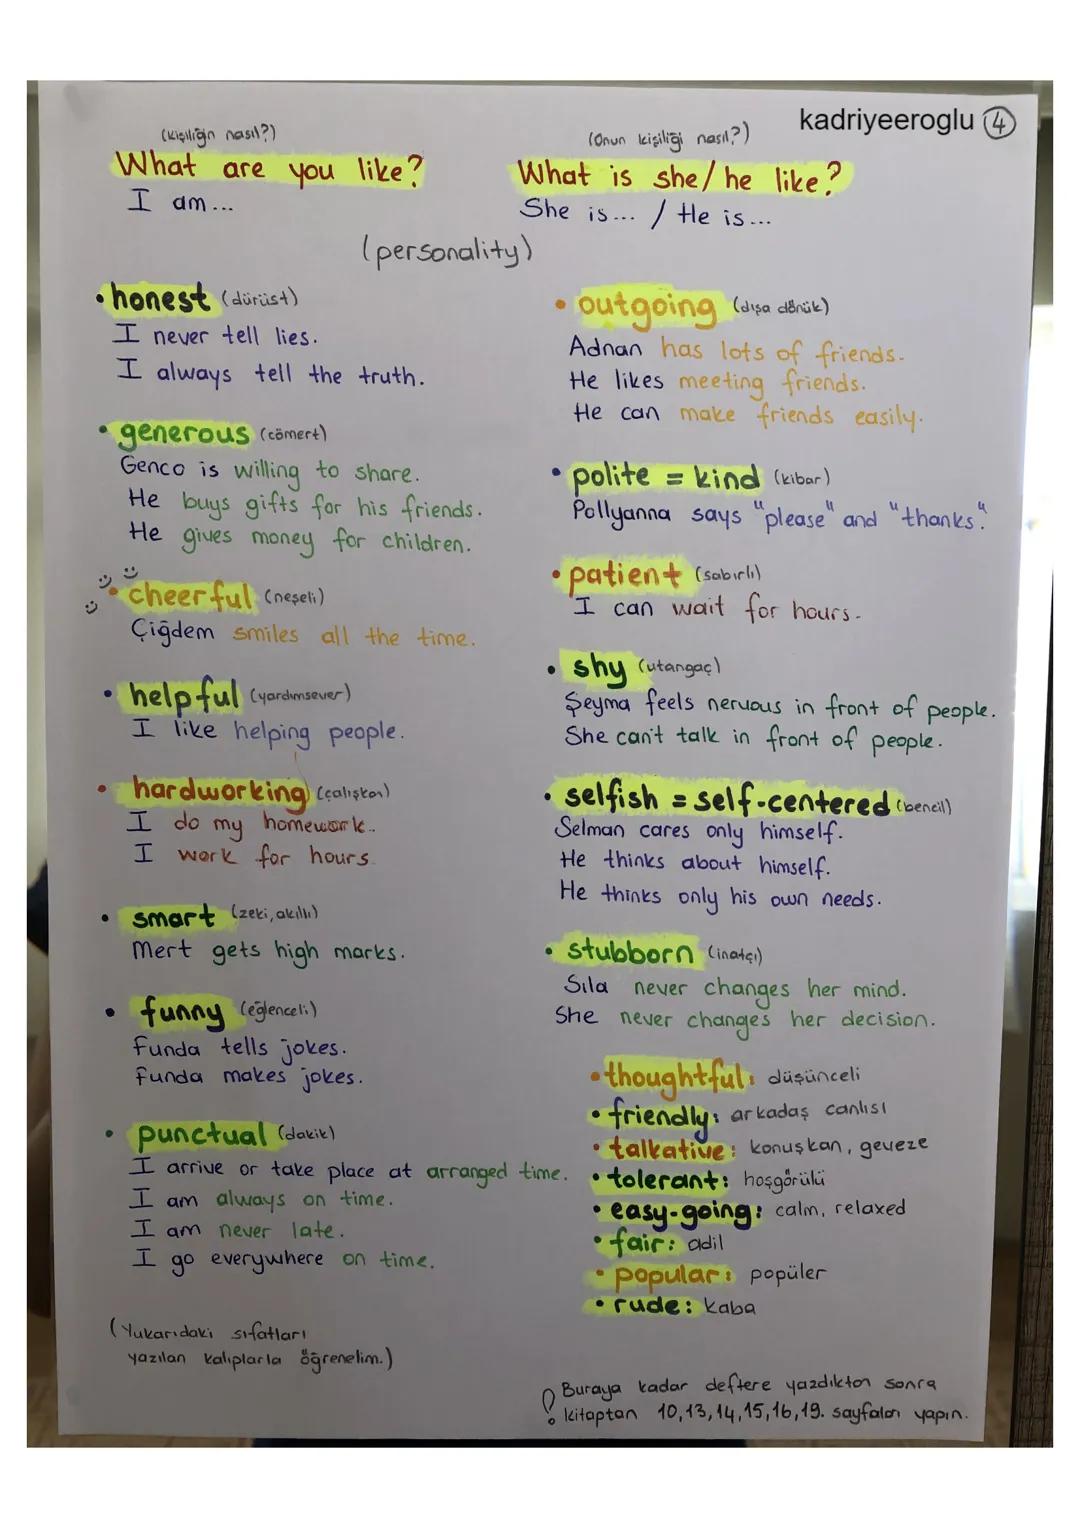 kadriyeeroglu 4
(Kişiliğin nasıl?)
What are you like?
I am...
(Onun kişiliği nasıl?)
What is she/he like?
She is... / He is...
(personality)
• honest (dürüst)
I never tell lies.
I always tell the truth.
• generous (cömert)
Genco is willing to share.
He buys gifts for his friends.
He gives money for children.
• cheerful (neşeli)
Çiğdem smiles all the time.
• helpful (yardımsever)
I like helping people.
• hardworking (çalışkan)
I do my homework.
I work for hours.
• smart (zeki, akıllı)
Mert gets high marks.
• funny (eğlenceli)
Funda tells jokes.
Funda makes jokes.
• punctual (dakik)
I arrive or take place at arranged time.
I am always on time.
I am never late.
I go everywhere on time.
(Yukarıdaki sıfatları
yazılan kalıplarla öğrenelim.)
• outgoing (dışa dönük)
Adnan has lots of friends.
He likes meeting friends.
He can make friends easily.
• polite = kind (kibar)
Pollyanna says "please" and "thanks".
• patient (sabırlı)
I can wait for hours.
• shy (utangaç)
Şeyma feels nervous in front of people.
She can't talk in front of people.
• selfish = self-centered (bencil)
Selman cares only himself.
He thinks about himself.
He thinks only his own needs.
• stubborn (inatçı)
Sıla never changes her mind.
She never changes her decision.
• thoughtful: düşünceli
• friendly: arkadaş canlısı
• talkative: konuşkan, geveze
• tolerant: hoşgörülü
• easy-going: calm, relaxed
• fair: adil
• popular: popüler
• rude: kaba
! Buraya kadar deftere yazdıktan sonra
kitaptan 10,13,14,15,16,19. sayfaları yapın.